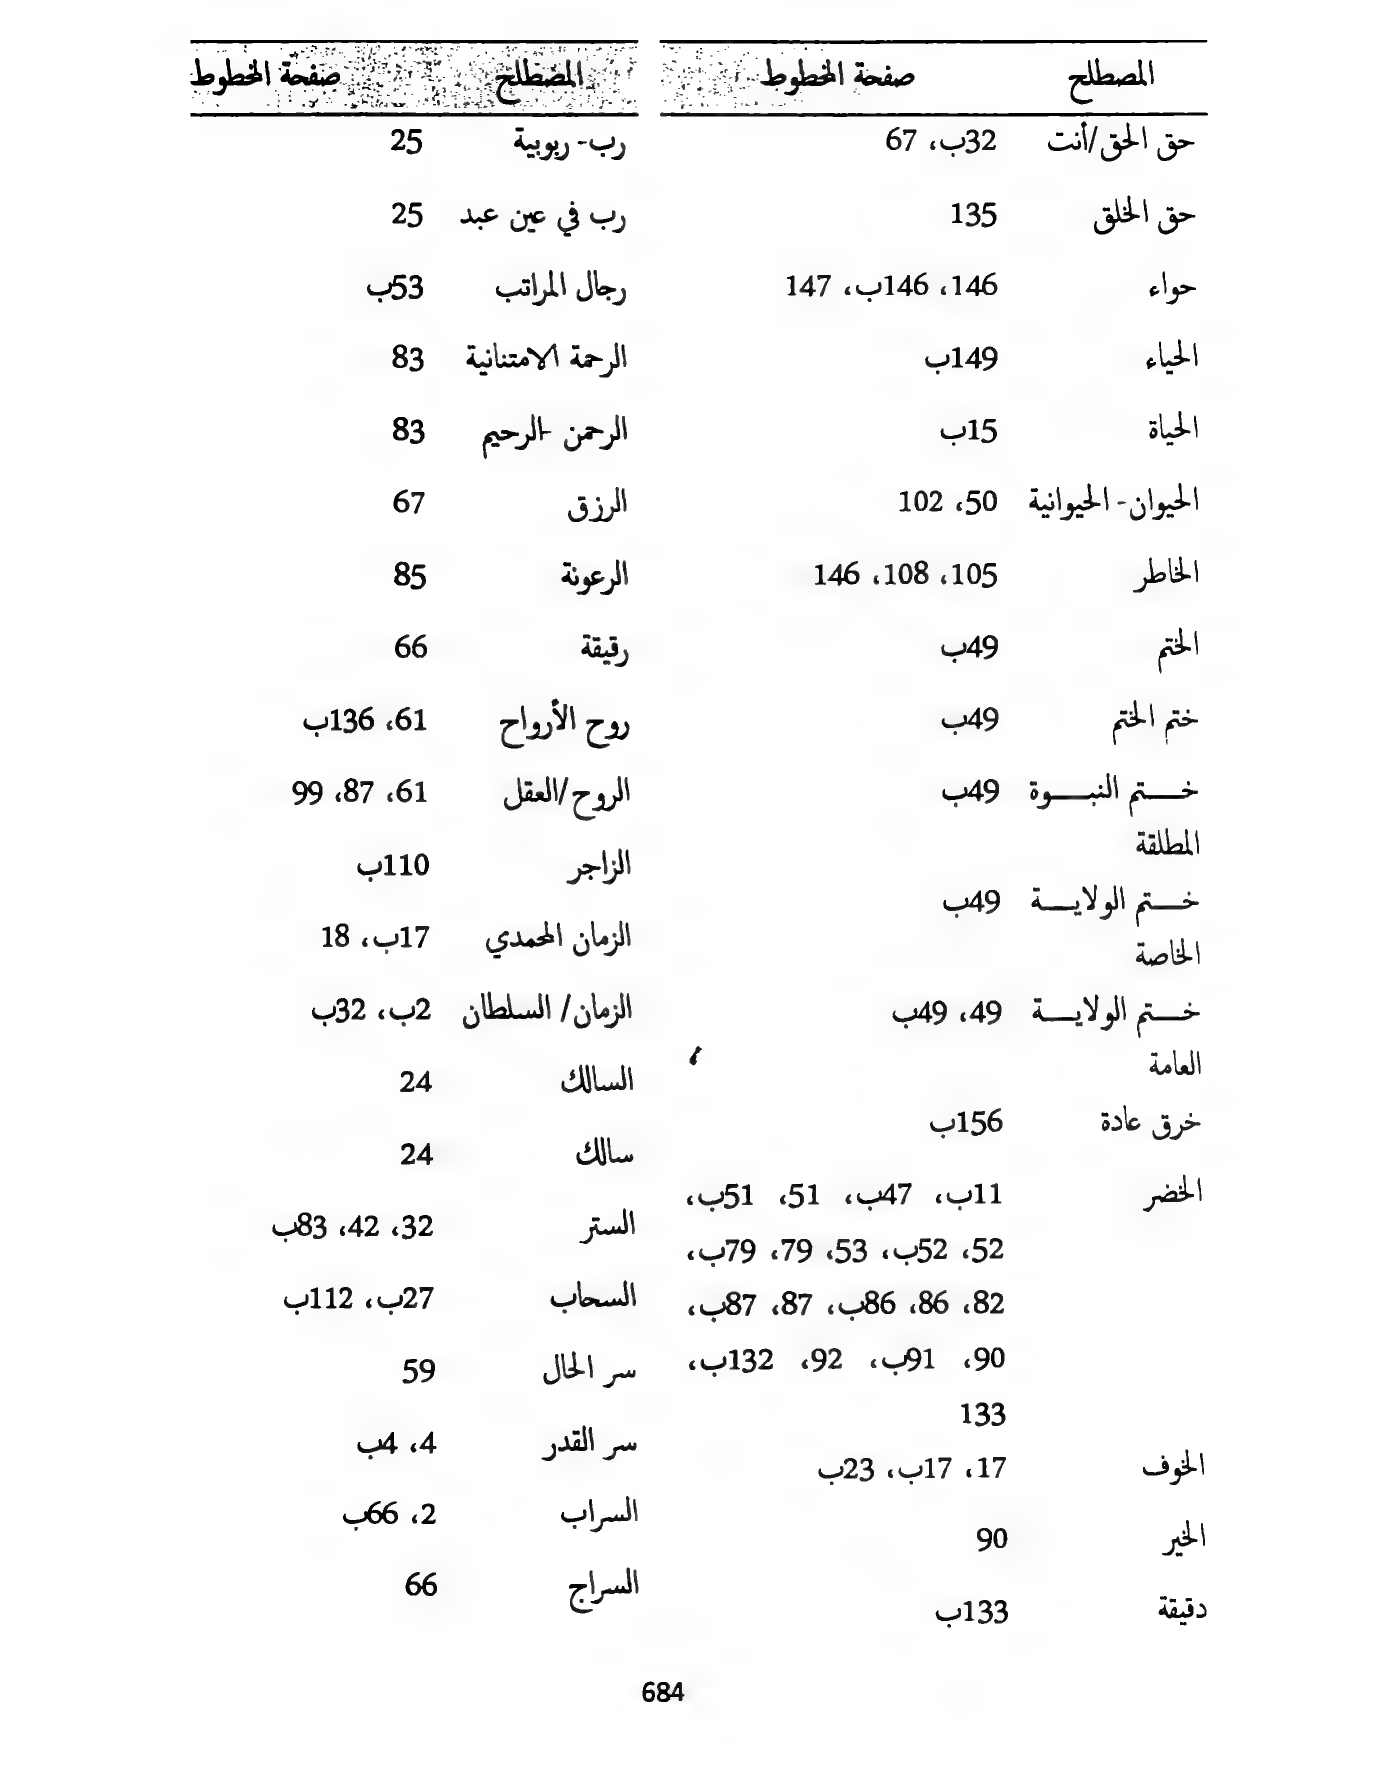 المصطلح صفحة المخطوط
حق الحق/أنت 32ب، 67
حق الخلق 135
حواء 146، 146ب، 147
الحياء 149ب
الحياة 15ب
الحيوان- الحيوانية 50، 102
الخاطر 105، 108، 146
الختم 49ب
ختم الختم 49ب
خـــتم النبـــوة 49ب
المطلقة
خـــتم الولايـــة 49ب
الخاصة
خـــتم الولايـــة 49، 49ب
العامة
خرق عادة 156ب
الخضر 11ب، 47ب، 51، 51ب،
52، 52ب، 53، 79، 79ب،
82، 86، 86ب، 87، 87ب،
90، 91ب، 92، 132ب،
133
الخوف 17، 17ب، 23ب
الخير 90
دقيقة 133ب
المصطلح صفحة المخطوط
رب- ربوبية 25
رب في عين عبد 25
رجال المراتب 53ب
الرحمة الامتنانية 83
الرحمن -الرحيم 83
الرزق 67
الرعونة 85
رقيقة 66
روح الأرواح 61، 136ب
الروح/العقل 61، 87، 99
الزاجر 110ب
الزمان المحمدي 17ب، 18
الزمان/ السلطان 2ب، 32ب
السالك 24
سالك 24
الستر 32، 42، 83ب
السحاب 27ب، 112ب
سر الحال 59
سر القدر 4، 4ب
السراب 2، 66ب
السراج 66
684